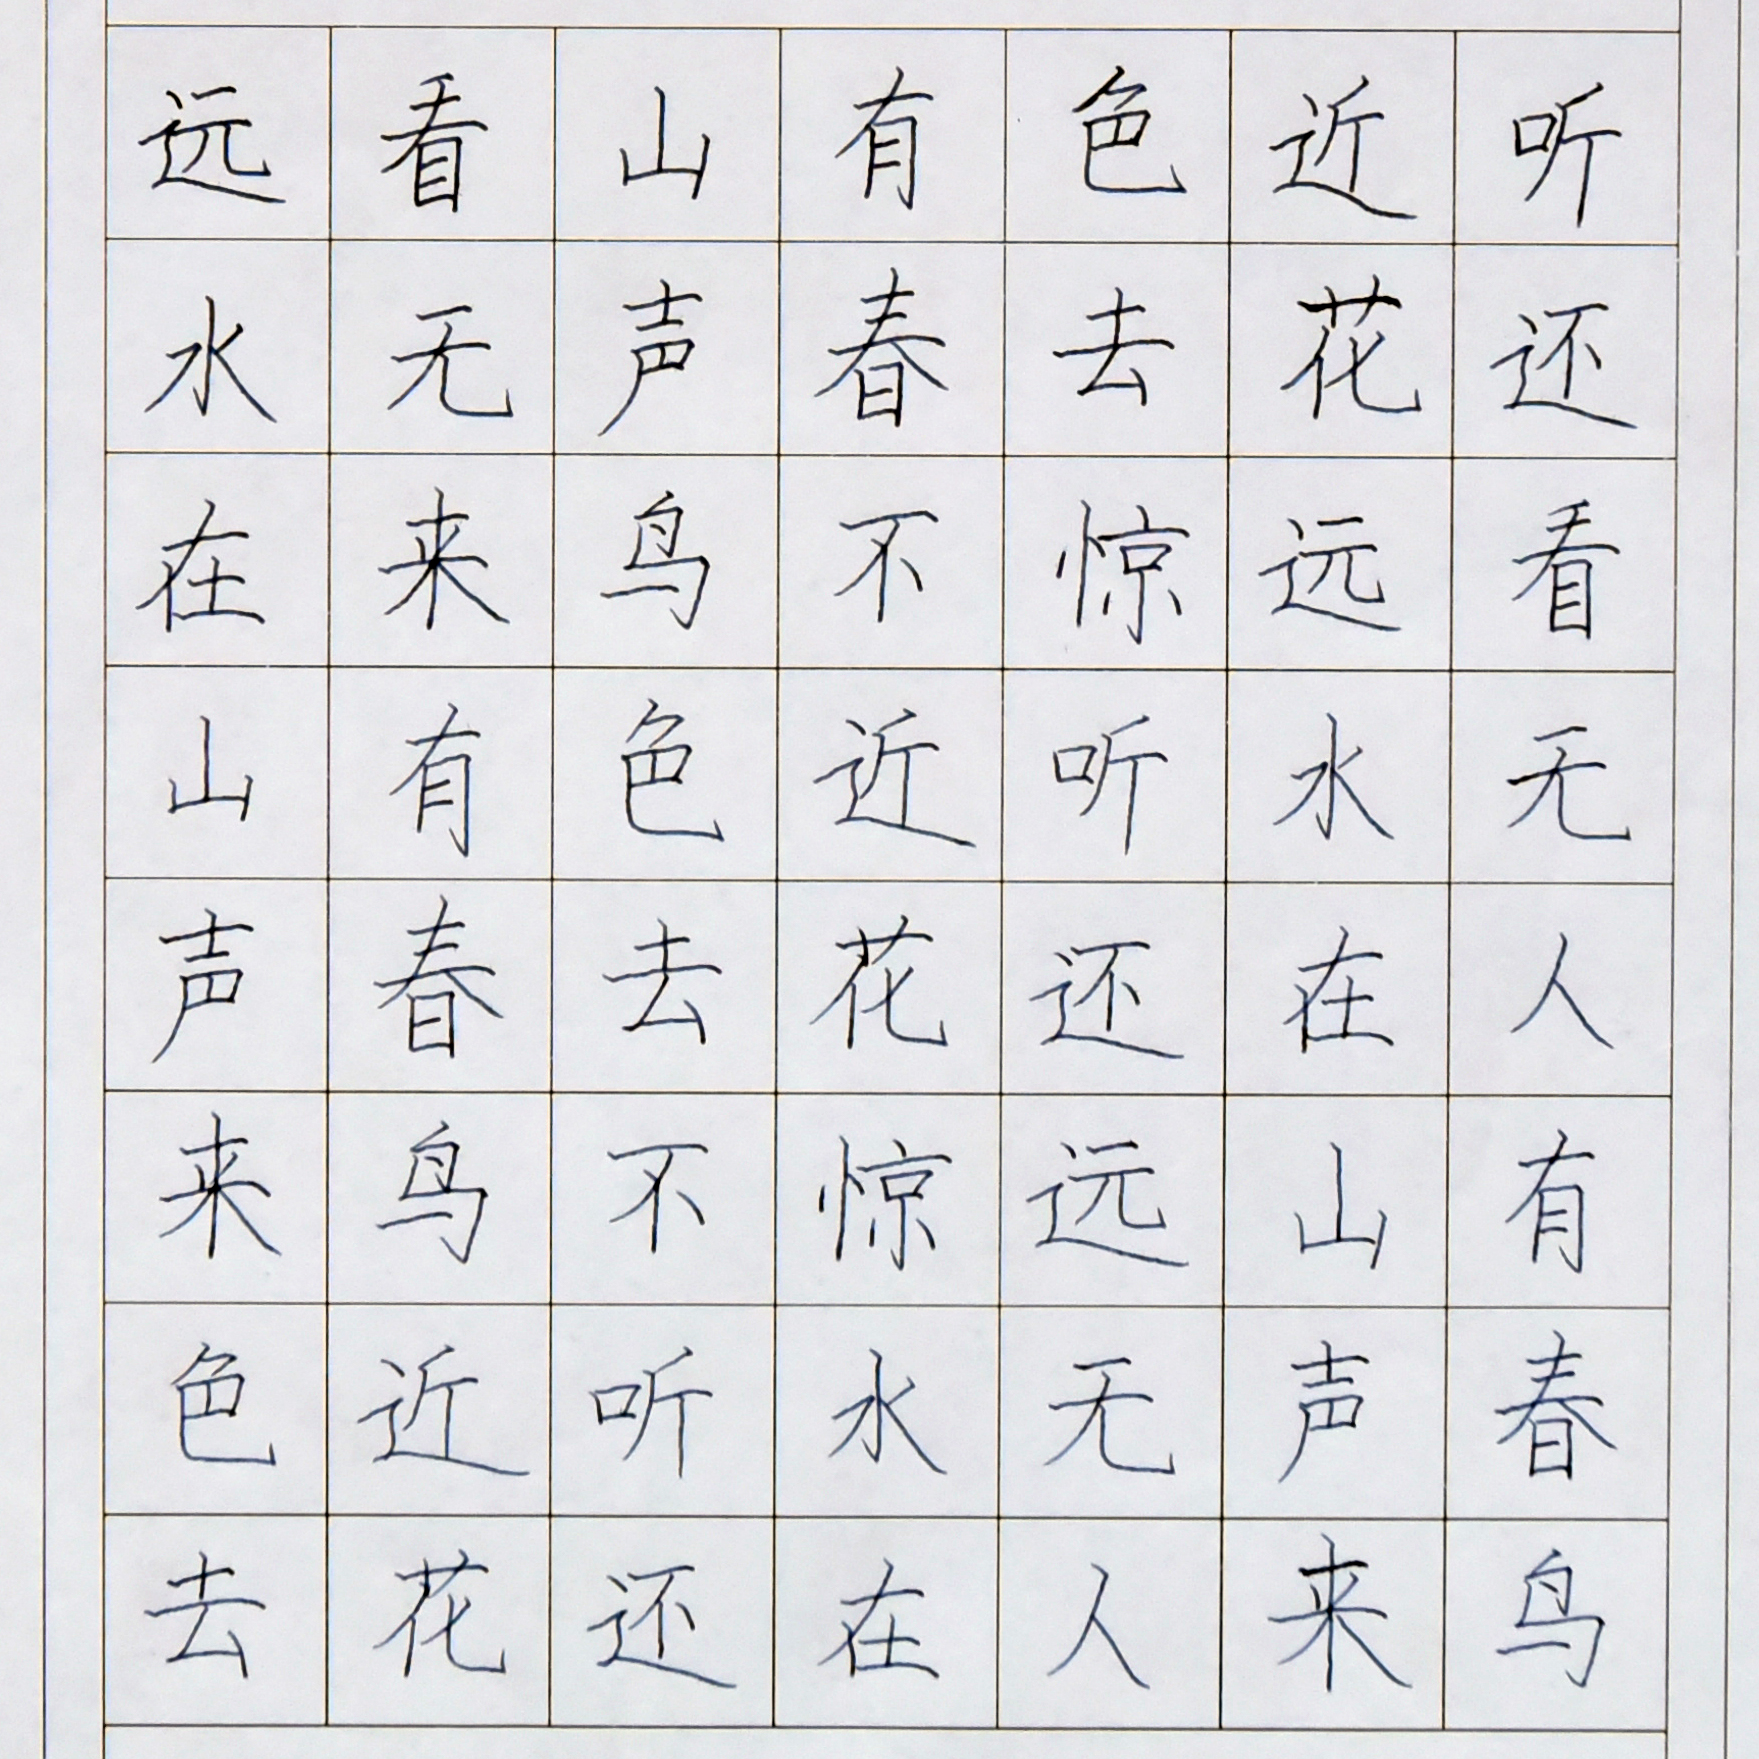 远看山有色近听
水无声春去花还
在来鸟不惊远看
山有色近听水无
声春去花还在人
来鸟不惊远山有
色近听水无声春
去花还在人来鸟